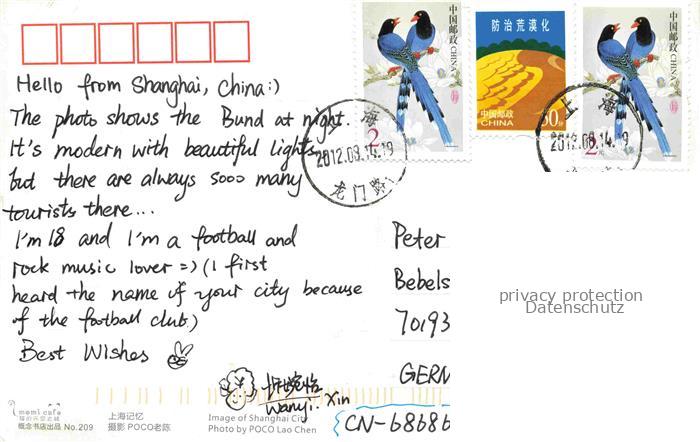 Hello from Shanghai, China:)
The photo shows the Bund at night.
It's modern with beautiful lights,
but there are always sooo many
tourists there...
I'm 18 and I'm a football and
rock music lover =) (I first
heard the name of your city because
of the football club.)
Best Wishes
Wanyi. Xin
momi cafe
概念书店出品 No.209
上海记忆
摄影 POCO老陈
Image of Shanghai City
Photo by POCO Lao Chen
中国邮政
CHINA
2
防治荒漠化
中国邮政
CHINA
80分
中国邮政
CHINA
2
上海
2012.08.14.19
龙门路
上海
2012.08.14.19
Peter
Bebels
70193
GERM
CN-68686
privacy protection
Datenschutz